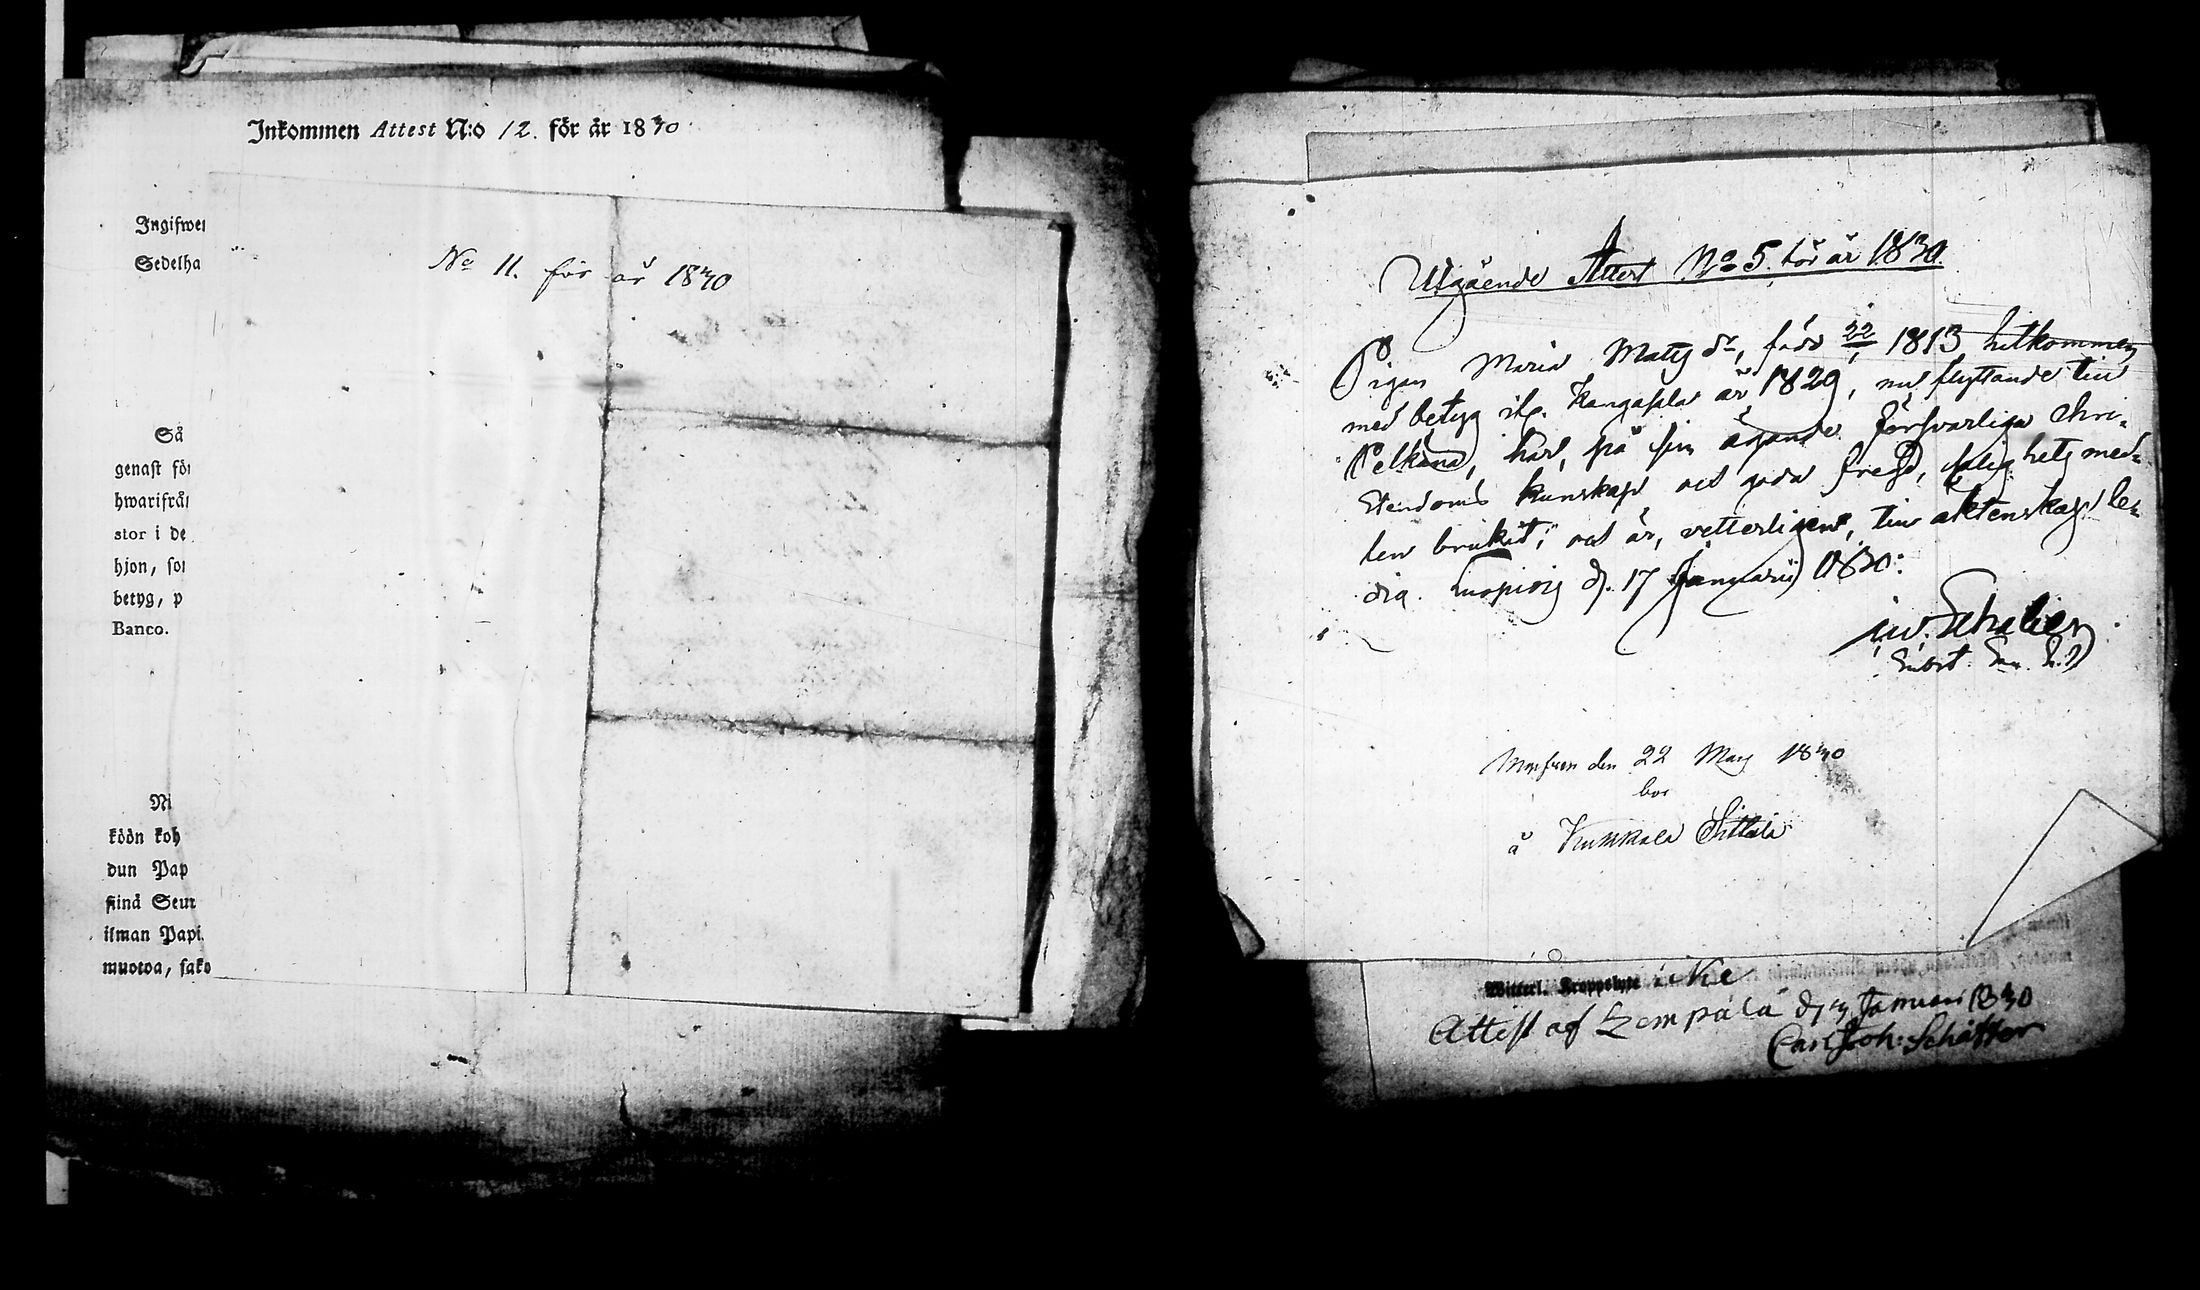 Inkommen Attest N:o 12. för år 1830
Ingifwer
Sedelha
No 11. för år 1830
Så
genast för
hwarifrån
stor i de
hjon, som
betyg, p
Banco.
Ni
köön koh
dun Pap
siinä Seur
ilman Papi
muotoa, sako
Utgående Attest No 5. för år 1830.
Pigan Maria Matts dr, född 22/1 1813 hitkommen
med betyg ifr. Kangasala år 1829, nu flyttande till
Pelkäne, har, på sin ägande försvarliga Chri-
stendoms kunskap och goda frejd, salig hets med-
len brukit; och är, vetterligen, till äktenskap le-
dig. d. 17 Januarii 1830:
den 22 Mars 1830
bor
å
Witterl. Kroppslyte icke
Attest af Lempälä d. Januari 1830
Carl Joh: Schäffer